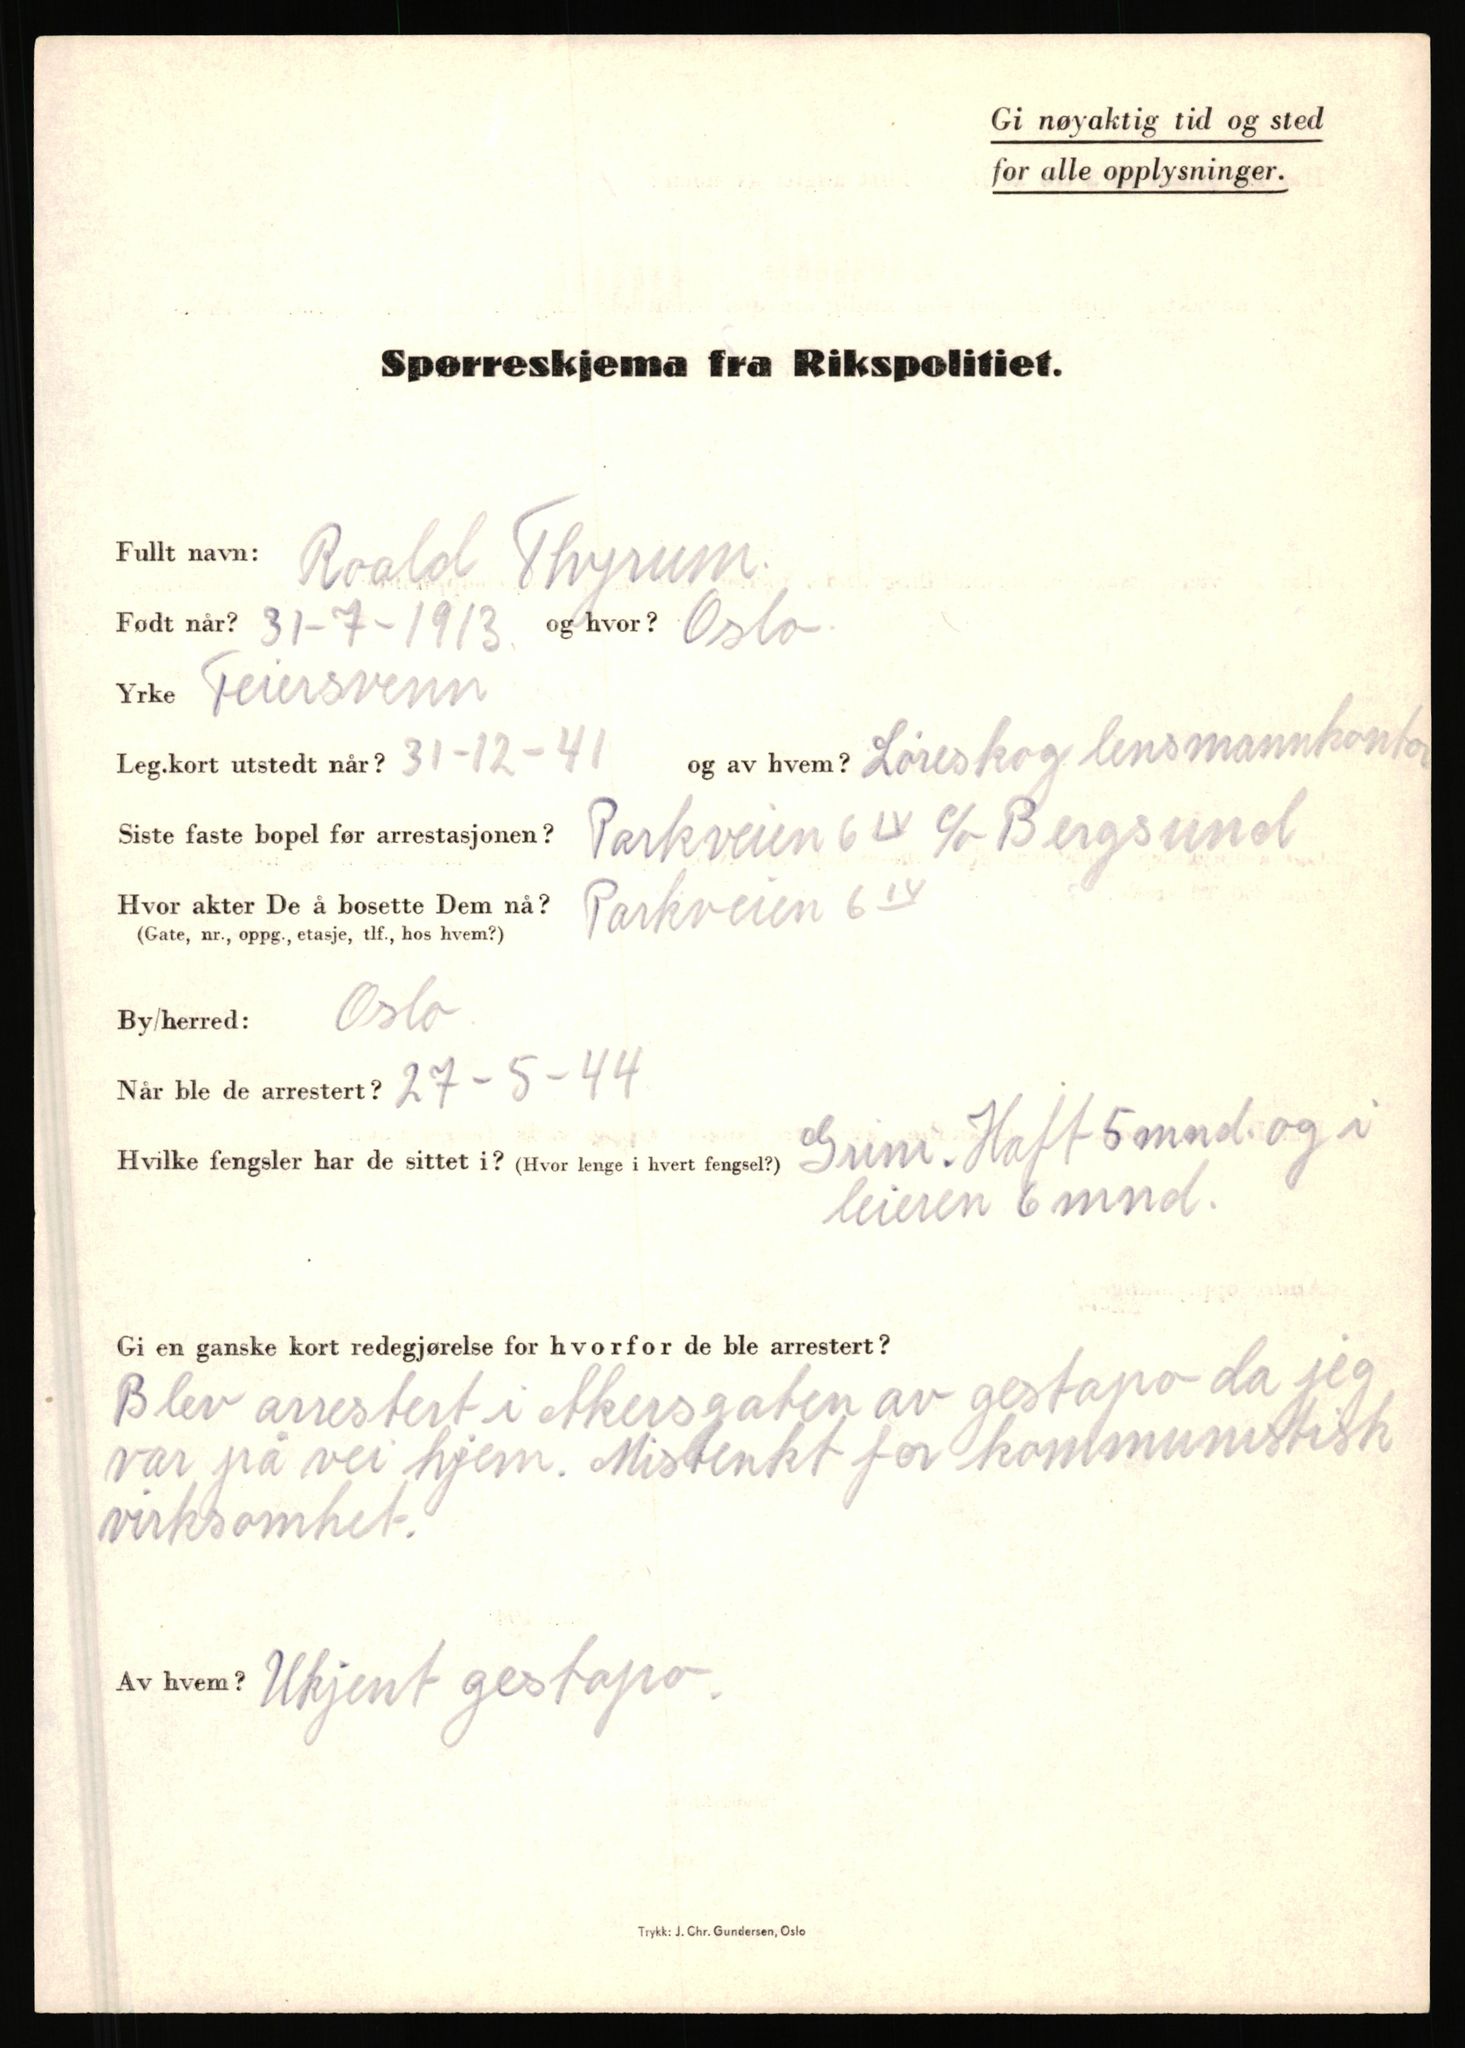 Gi nøyaktig tid og sted
for alle opplysninger.
Spørreskjema fra Rikspolitiet.
Fullt navn: Roald Thyrum.
Født når? 31-7-1913. og hvor? Oslo.
Yrke Feiersvenn
Leg.kort utstedt når? 31-12-41 og av hvem? Løreskog lensmannkontor
Siste faste bopel før arrestasjonen? Parkveien 6 IV c/o Bergsund
Hvor akter De å bosette Dem nå? Parkveien 6 IV
(Gate, nr., oppg., etasje, tlf., hos hvem?)
By/herred: Oslo
Når ble de arrestert? 27-5-44
Hvilke fengsler har de sittet i? (Hvor lenge i hvert fengsel?) Grini. Haft 5 mnd. og i
leieren 6 mnd.
Gi en ganske kort redegjørelse for hvorfor de ble arrestert?
Blev arrestert i Akersgaten av gestapo da jeg
var på vei hjem. Mistenkt for kommunistisk
virksomhet.
Av hvem? Ukjent gestapo.
Trykk: J. Chr. Gundersen, Oslo